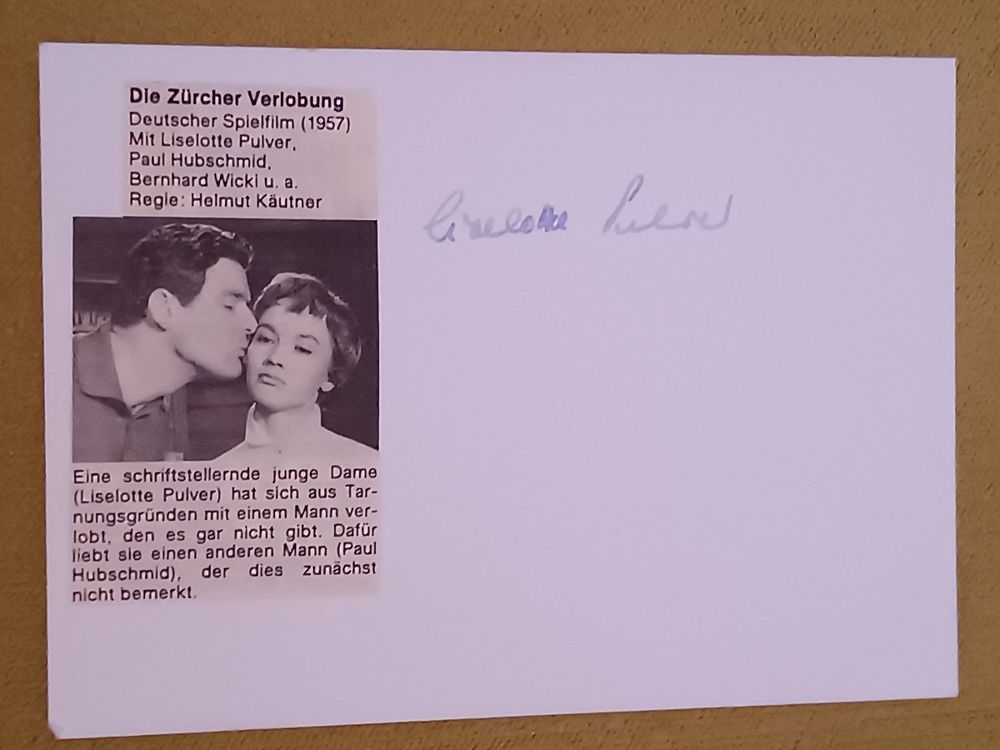 Die Zürcher Verlobung
Deutscher Spielfilm (1957)
Mit Liselotte Pulver,
Paul Hubschmid,
Bernhard Wicki u. a.
Regie: Helmut Käutner
Liselotte Pulver
Eine schriftstellernde junge Dame
(Liselotte Pulver) hat sich aus Tar-
nungsgründen mit einem Mann ver-
lobt, den es gar nicht gibt. Dafür
liebt sie einen anderen Mann (Paul
Hubschmid), der dies zunächst
nicht bemerkt.